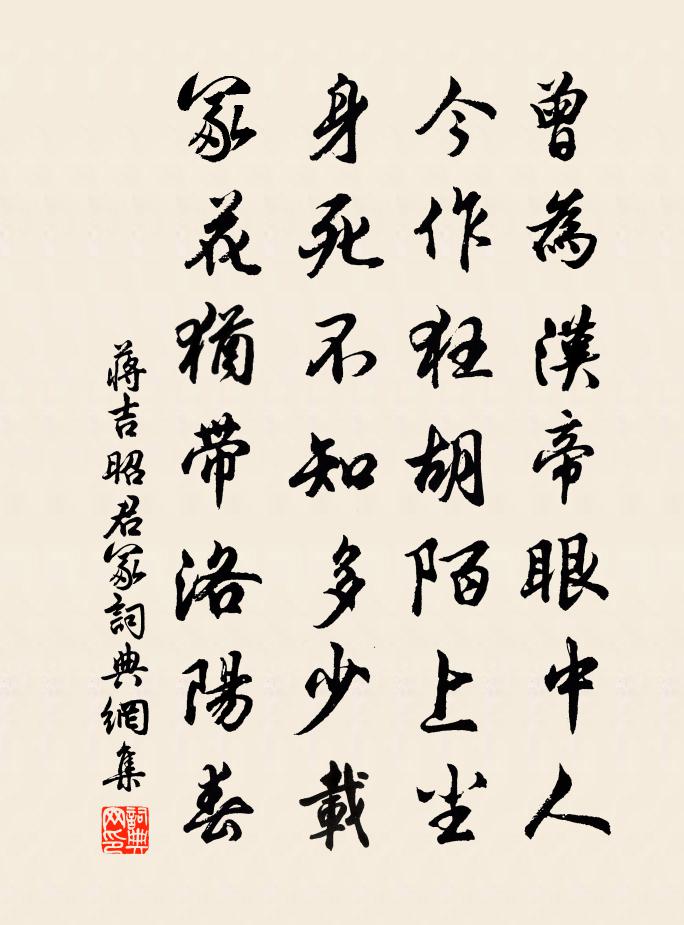 曾為漢帝眼中人
今作狂胡陌上尘
身死不知多少載
冢花猶带洛陽春
蔣吉昭君冢詞典網集
詞典網印